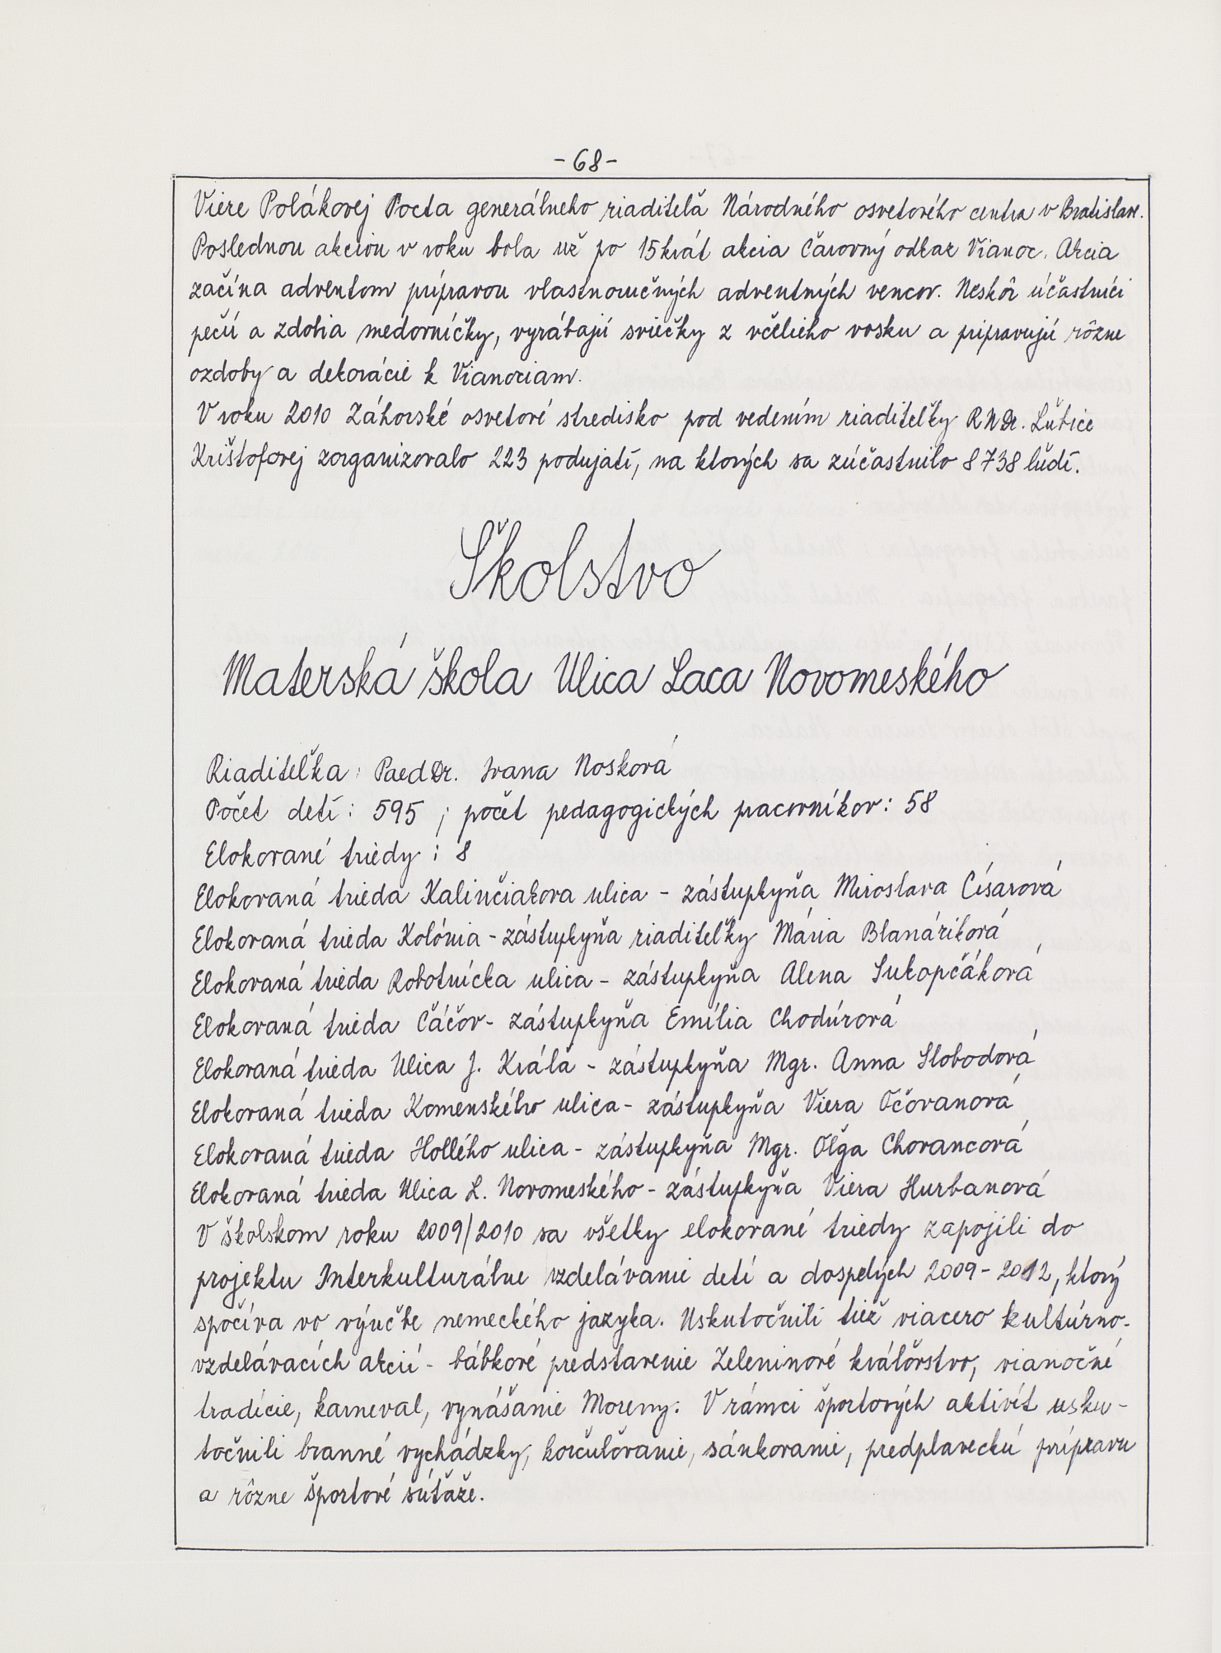 -68-
Viere Polákovej Pocta generálneho riaditeľa Národného osvetového centra v Bratislave.
Poslednou akciou v roku bola už po 15krát akcia Čarovný odkaz Vianoc. Akcia
začína adventom prípravou vlastnoručných adventných vencov. Neskôr účastníci
pečú a zdobia medovníčky, vyrábajú sviečky z včelieho vosku a pripravujú rôzne
ozdoby a dekorácie k Vianociam.
V roku 2010 Záhorské osvetové stredisko pod vedením riaditeľky RNDr. Ľubice
Krištofovej zorganizovalo 223 podujatí, na ktorých sa zúčastnilo 8 738 ľudí.
Školstvo
Materská škola Ulica Laca Novomeského
Riaditeľka: PaedDr. Ivana Nosková
Počet detí: 595 ; počet pedagogických pracovníkov: 58
Elokované triedy: 8
Elokovaná trieda Kalinčiakova ulica - zástupkyňa Miroslava Císarová
Elokovaná trieda Kolónia - zástupkyňa riaditeľky Mária Blanáriková
Elokovaná trieda Robotnícka ulica - zástupkyňa Alena Sukopčáková
Elokovaná trieda Čáčov - zástupkyňa Emília Chodúrová
Elokovaná trieda Ulica J. Kráľa - zástupkyňa Mgr. Anna Slobodová
Elokovaná trieda Komenského ulica - zástupkyňa Viera Očovanová
Elokovaná trieda Hollého ulica - zástupkyňa Mgr. Oľga Chovancová
Elokovaná trieda Ulica L. Novomeského - zástupkyňa Viera Hurbanová
V školskom roku 2009/2010 sa všetky elokované triedy zapojili do
projektu Interkulturálne vzdelávanie detí a dospelých 2009-2012, ktorý
spočíva vo výučbe nemeckého jazyka. Uskutočnili tiež viacero kultúrno-
vzdelávacích akcií - bábkové predstavenie Zeleninové kráľovstvo, vianočné
tradície, karneval, vynášanie Moreny. V rámci športových aktivít usku-
točnili branné vychádzky, korčuľovanie, sánkovanie, predplaveckú prípravu
a rôzne športové súťaže.